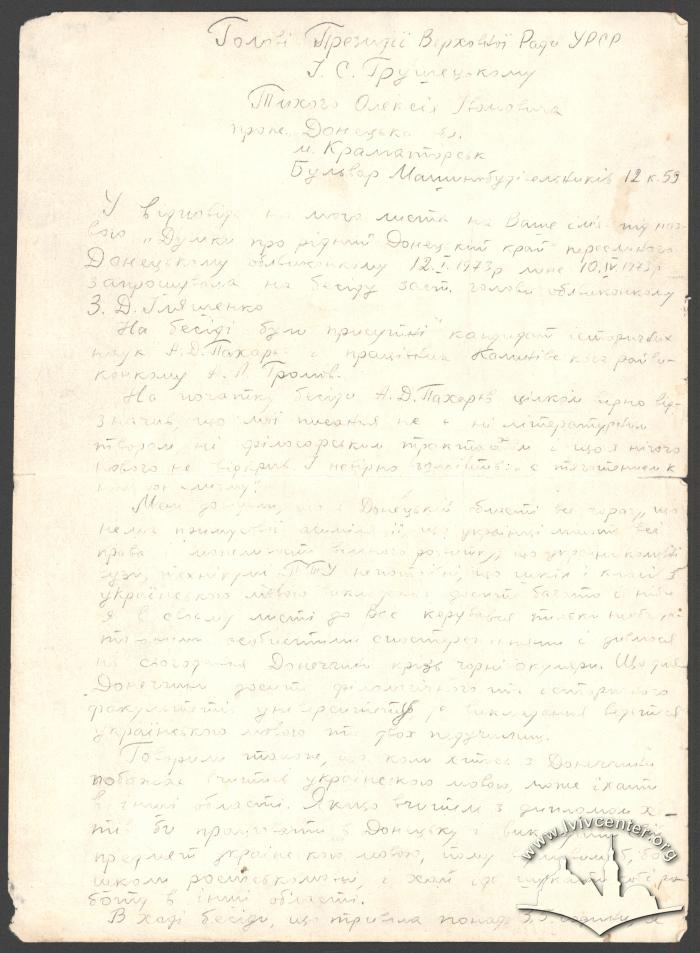 Голові Президії Верховної Ради УРСР
І. С. Грушецькому
Тихого Олексія Івановича
прож. Донецька обл.
м. Краматорськ
Бульвар Машинобудівельників 12 к. 59
У відповідь на мого листа на Ваше ім'я під наз-
вою „Думки про рідний Донецький край" пересланого
Донецькому облвиконкому 12.I.1973р мене 10.IV.1973р
запрошувала на бесіду заст. голови облвиконкому
З. Д. Іляшенко
На бесіді були присутні кандидат історичних
наук А.Д. Пахарєв і працівник Калінінського райви-
конкому А. П. Громов.
На початку бесіди А.Д. Пахарєв цілком вірно від-
значив, що мої писання не є ні літературним
твором, ні філософським трактатом і що я нічого
нового не відкрив
Мені що в Донецькій області все гаразд, що
нема примусової асиміляції, що українці мають всі
права і можливості вільного розвитку, що україномовні
вузи, технікуми і ПТУ непотрібні, що шкіл і класів з
українською мовою викладання досить багато і
я в своєму листі до Вас керувався тільки
особистими спостереженнями і дивлюся
на сьогодення Донеччини крізь чорні окуляри. Що для
Донеччини досить філологічного та історичного
факультетів університету, де викладання ведеться
українською мовою та двох педучилищ.
Говорили також, що коли хтось з Донеччини
побажає вчитись українською мовою, може їхати
в інші області. Якщо вчитель з дипломом хо-
тів би працювати в Донецьку і
предмет українською мовою, йому бо
школи російськомовні і хай їде шукати собі ро-
боту в інші області.
В ході бесіди, що тривала понад 3,5 години
www.lvivcenter.org